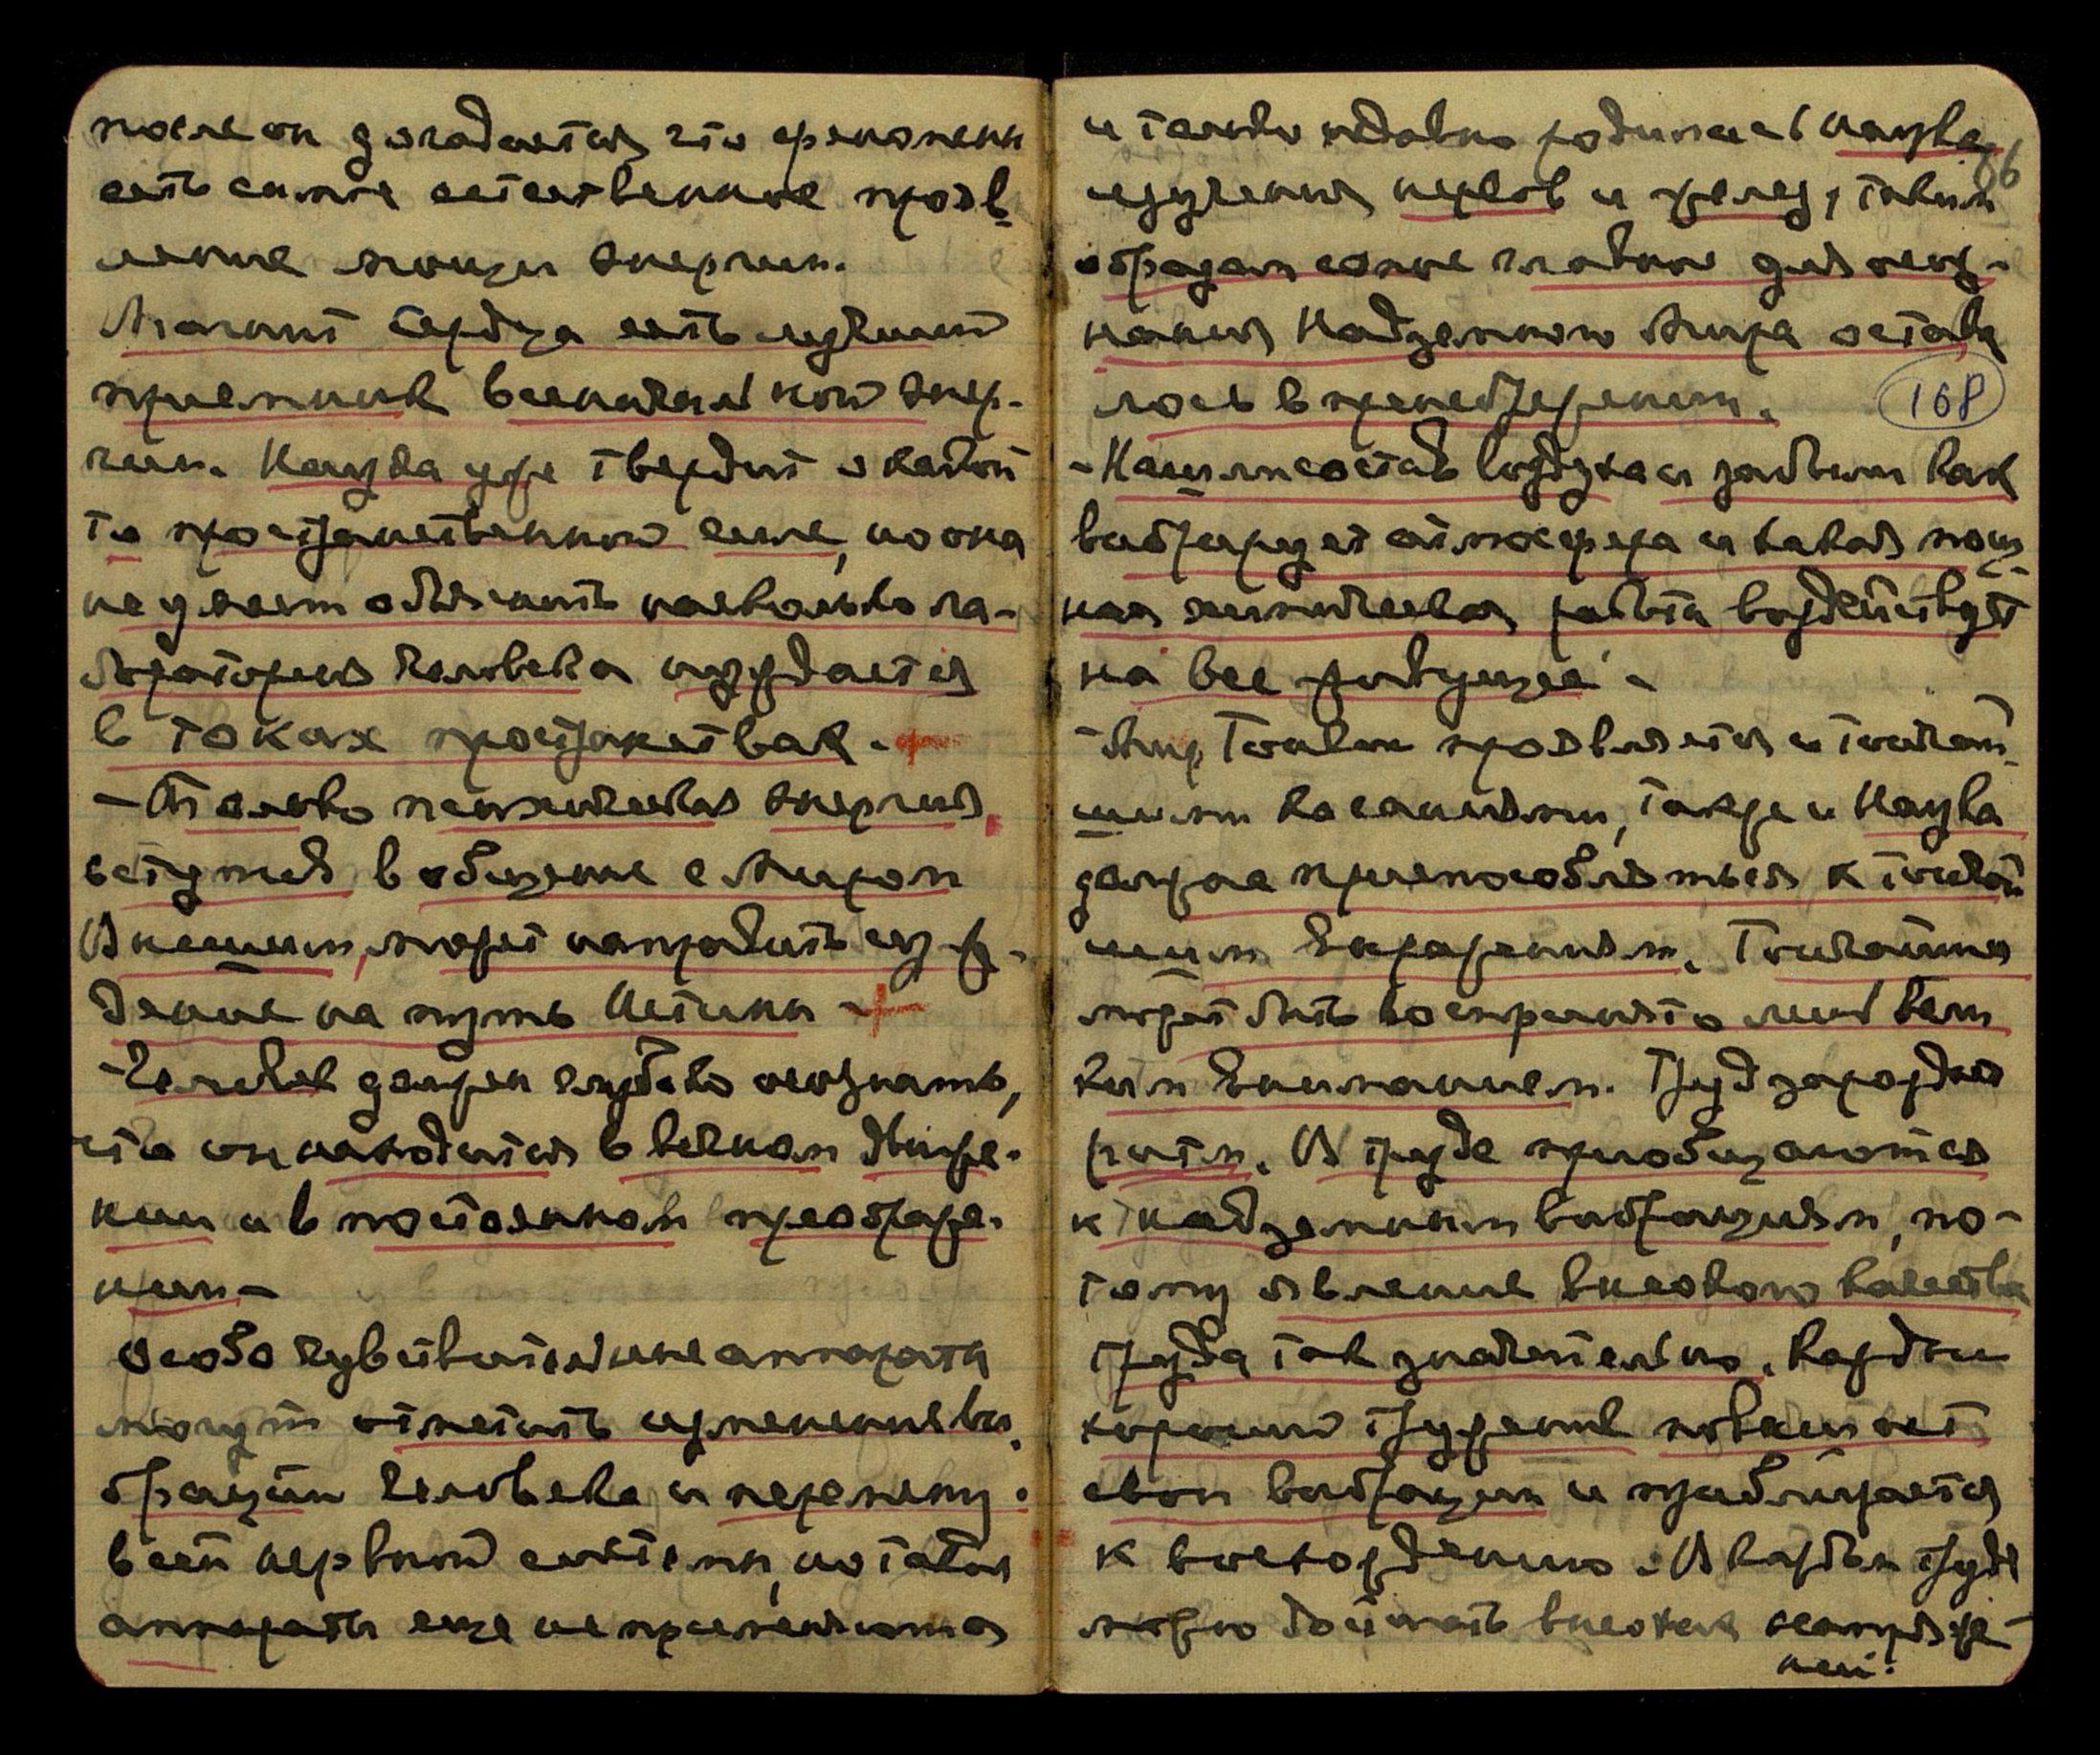 после он догадается что феномены
есть самое естественное прояв-
ление мощи энергии.
Магнит Сердца есть лучший
приемник всеначальной энер-
гии. Наука уже твердит о какой
то пространственной силе, но она
не умеет объяснить насколько ла-
боратория человека нуждается
в токах пространства. +
- Только психическая энергия,
вступая в общение с Миром
Высшим, может направить суж-
дение на путь Истины - +
- Человек должен глубоко осознать,
что он находится в вечном движе-
нии и в постоянном преображе-
нии -
Особо чувствительные аппараты
могут отметить изменение ви-
брации человека и перемену
всей нервной системы, но такие
аппараты еще не применяются
и только недавно родилась наука
66
изучения нервов и желез, таким
образом самое главное для поз-
нания Надземного Мира остава
лось в пренебрежении.
168
- Нашли состав воздуха и забыли как
вибрирует атмосфера и какая мощ-
ная химическая работа воздействует
на все живущее -
- Мир Тонкий проявляется и тончай-
шими касаниями, также и Наука
должна приспособляться к тончай
шим выражениям. Тончайшее
может быть воспринято лишь тон
ким вниманием. Труд зарождает
ритм. В труде приобщаются
к надземным вибрациям, по-
тому явление высокого качества
труда так значительно. Каждый
хороший труженик повышает
свои вибрации и приближается
к восхождению. В каждом труде
можно достигать высоких напряже-
ний.